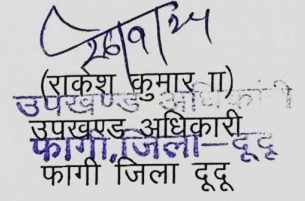 26/9/24
(राकेश कुमार II)
उपखण्ड अधिकारी
उपखण्ड अधिकारी
फागी,जिला-दूदू
फागी जिला दूदू